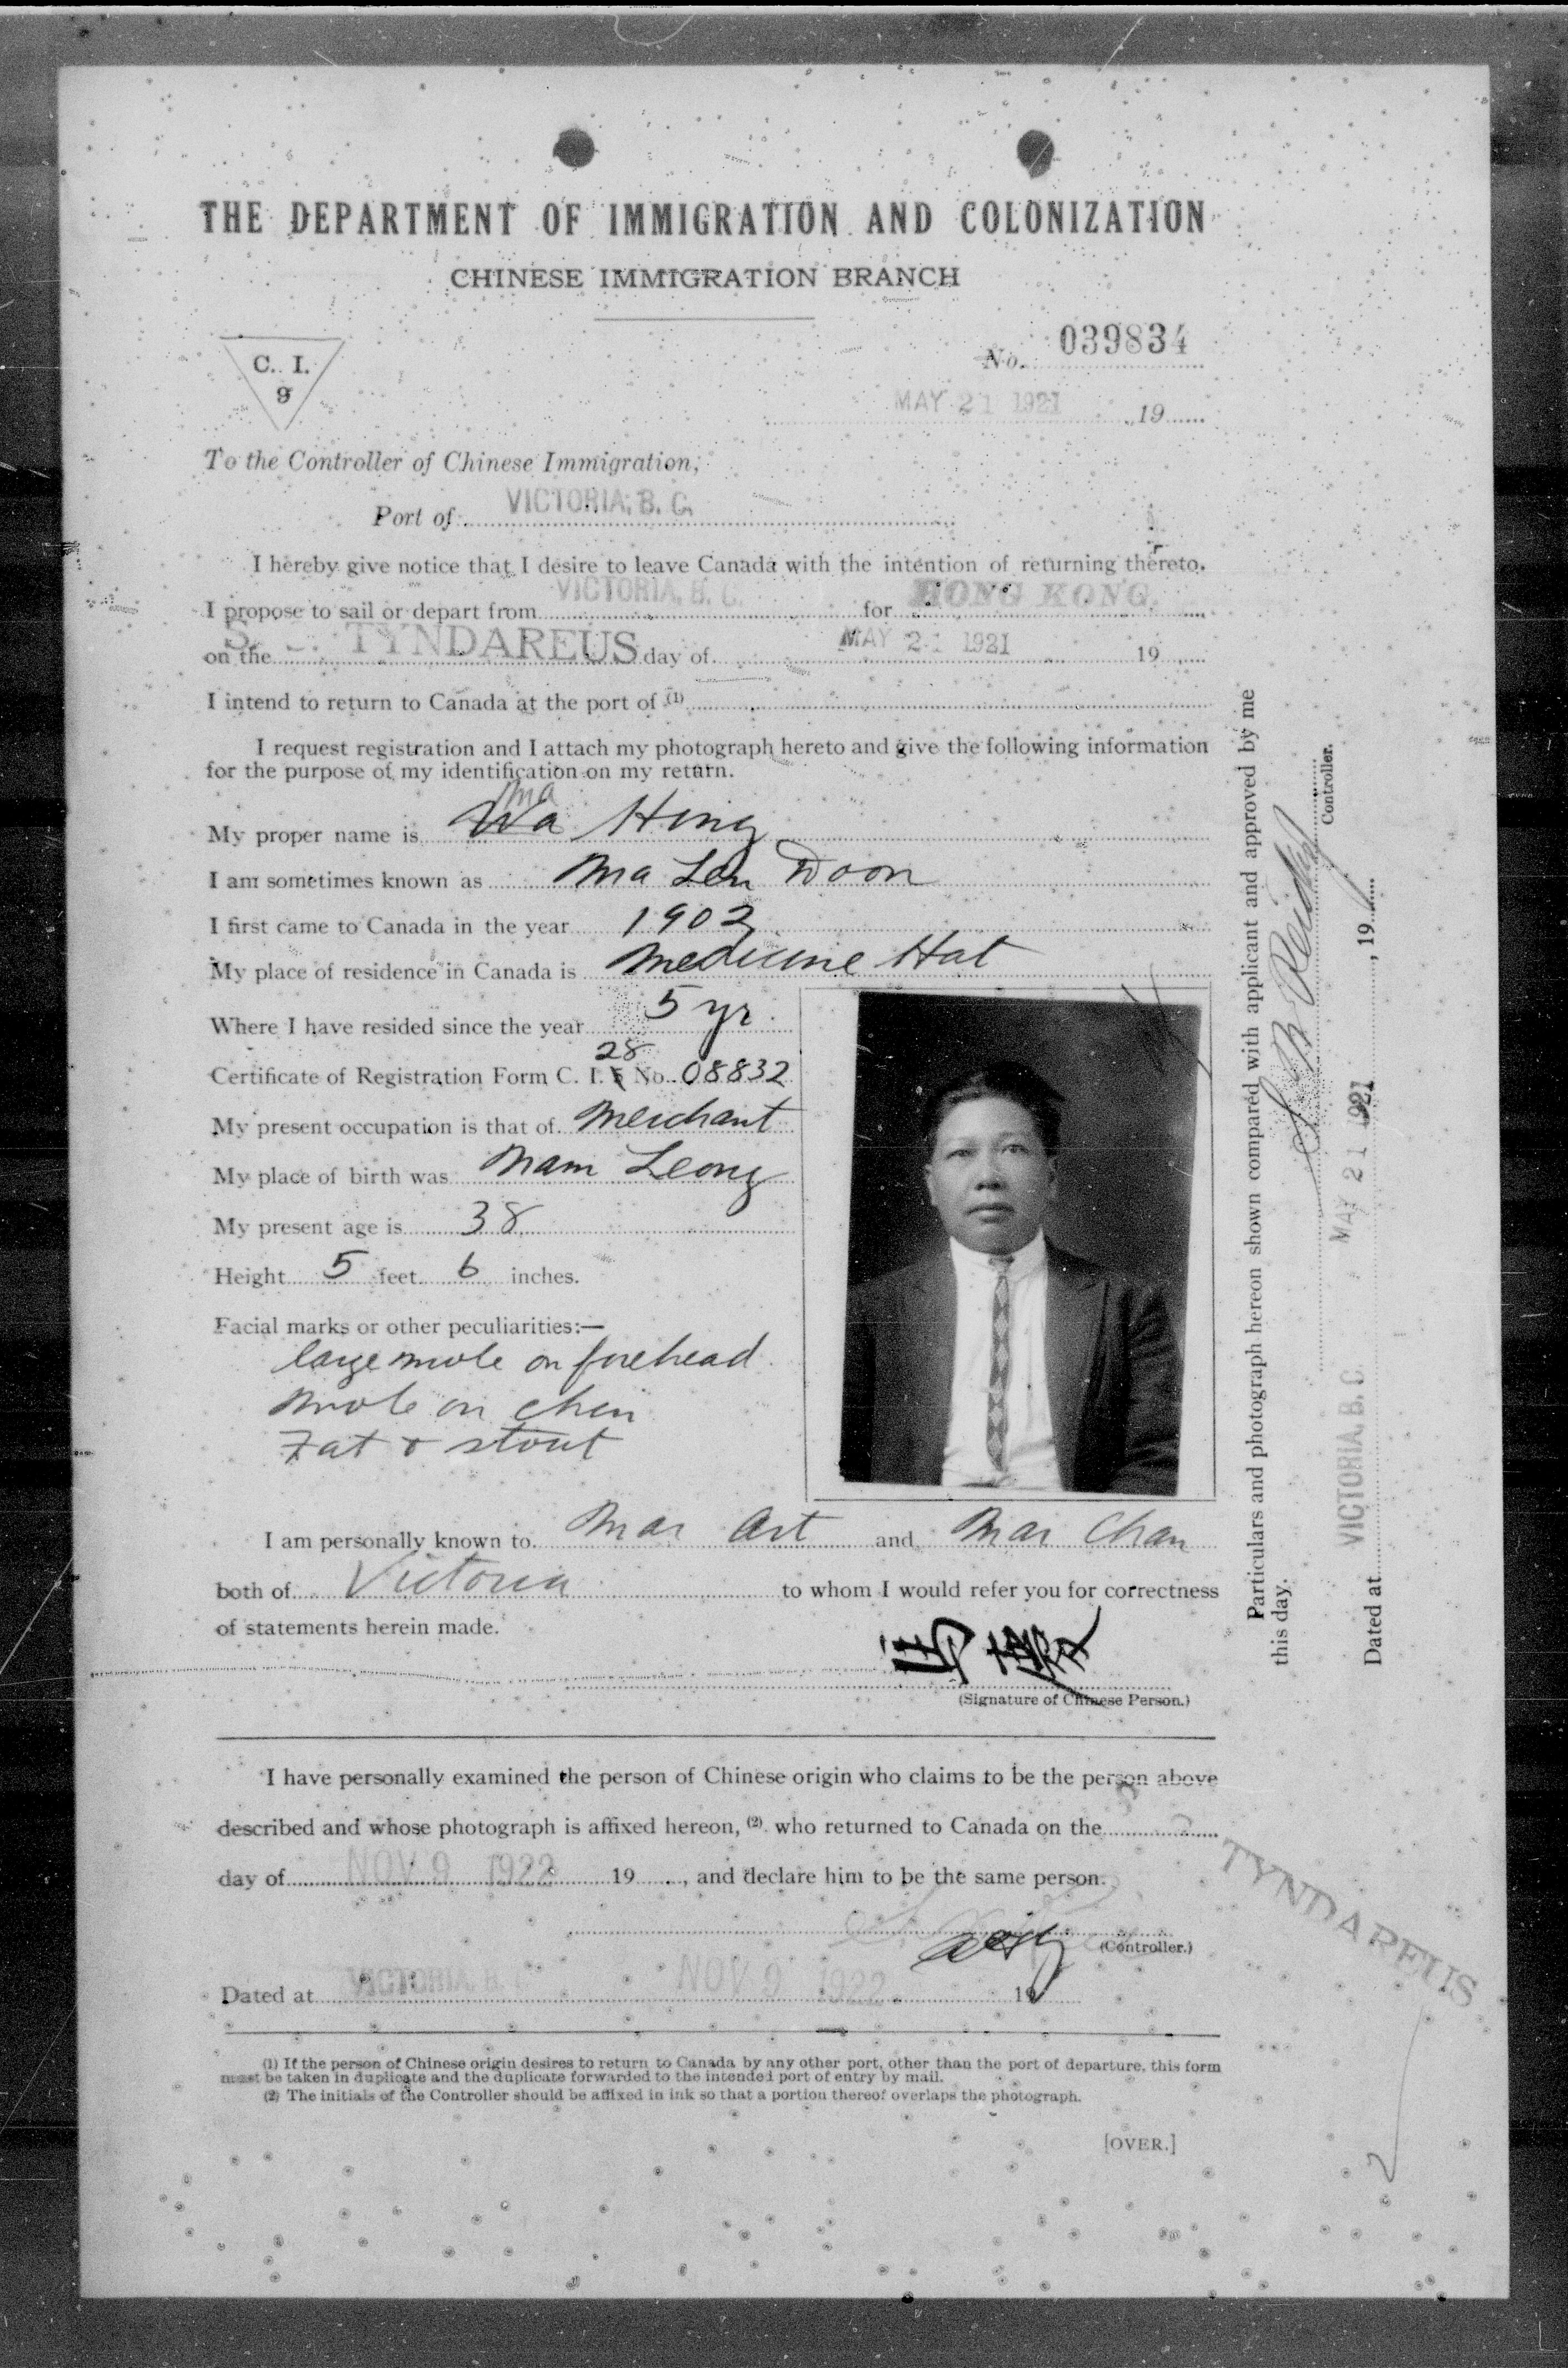 THE DEPARTMENT OF IMMIGRATION AND COLONIZATION
CHINESE IMMIGRATION BRANCH
C. I.
9
No. 039834
MAY 21 1921 19
To the Controller of Chinese Immigration,
Port of VICTORIA, B. C.
I hereby give notice that I desire to leave Canada with the intention of returning thereto.
I propose to sail or depart from VICTORIA, B. C. for HONG KONG.
on the S. S. TYNDAREUS day of MAY 21 1921 19
I intend to return to Canada at the port of (1)
I request registration and I attach my photograph hereto and give the following information
for the purpose of my identification on my return.
Ma
My proper name is Wa Hing
I am sometimes known as Ma Len Doon
I first came to Canada in the year 1902
My place of residence in Canada is Medicine Hat
Where I have resided since the year 5 yr.
28
Certificate of Registration Form C. I. 5 No. 08832
My present occupation is that of Merchant
My place of birth was Nam Leong
My present age is 38
Height 5 feet 6 inches.
Facial marks or other peculiarities:—
large mole on forehead
mole on chin
Fat & stout
I am personally known to Mar Art and Mar Chan
both of Victoria to whom I would refer you for correctness
of statements herein made.
(Signature of Chinese Person.)
I have personally examined the person of Chinese origin who claims to be the person above
described and whose photograph is affixed hereon, (2) who returned to Canada on the
day of NOV 9 1922 19 , and declare him to be the same person.
(Controller.)
Dated at VICTORIA, B. C. NOV 9 1922 19
TYNDAREUS
(1) If the person of Chinese origin desires to return to Canada by any other port, other than the port of departure, this form
must be taken in duplicate and the duplicate forwarded to the intended port of entry by mail.
(2) The initials of the Controller should be affixed in ink so that a portion thereof overlaps the photograph.
[OVER.]
Particulars and photograph hereon shown compared with applicant and approved by me
this day.
Controller.
Dated at VICTORIA, B. C. MAY 21 1921 , 19